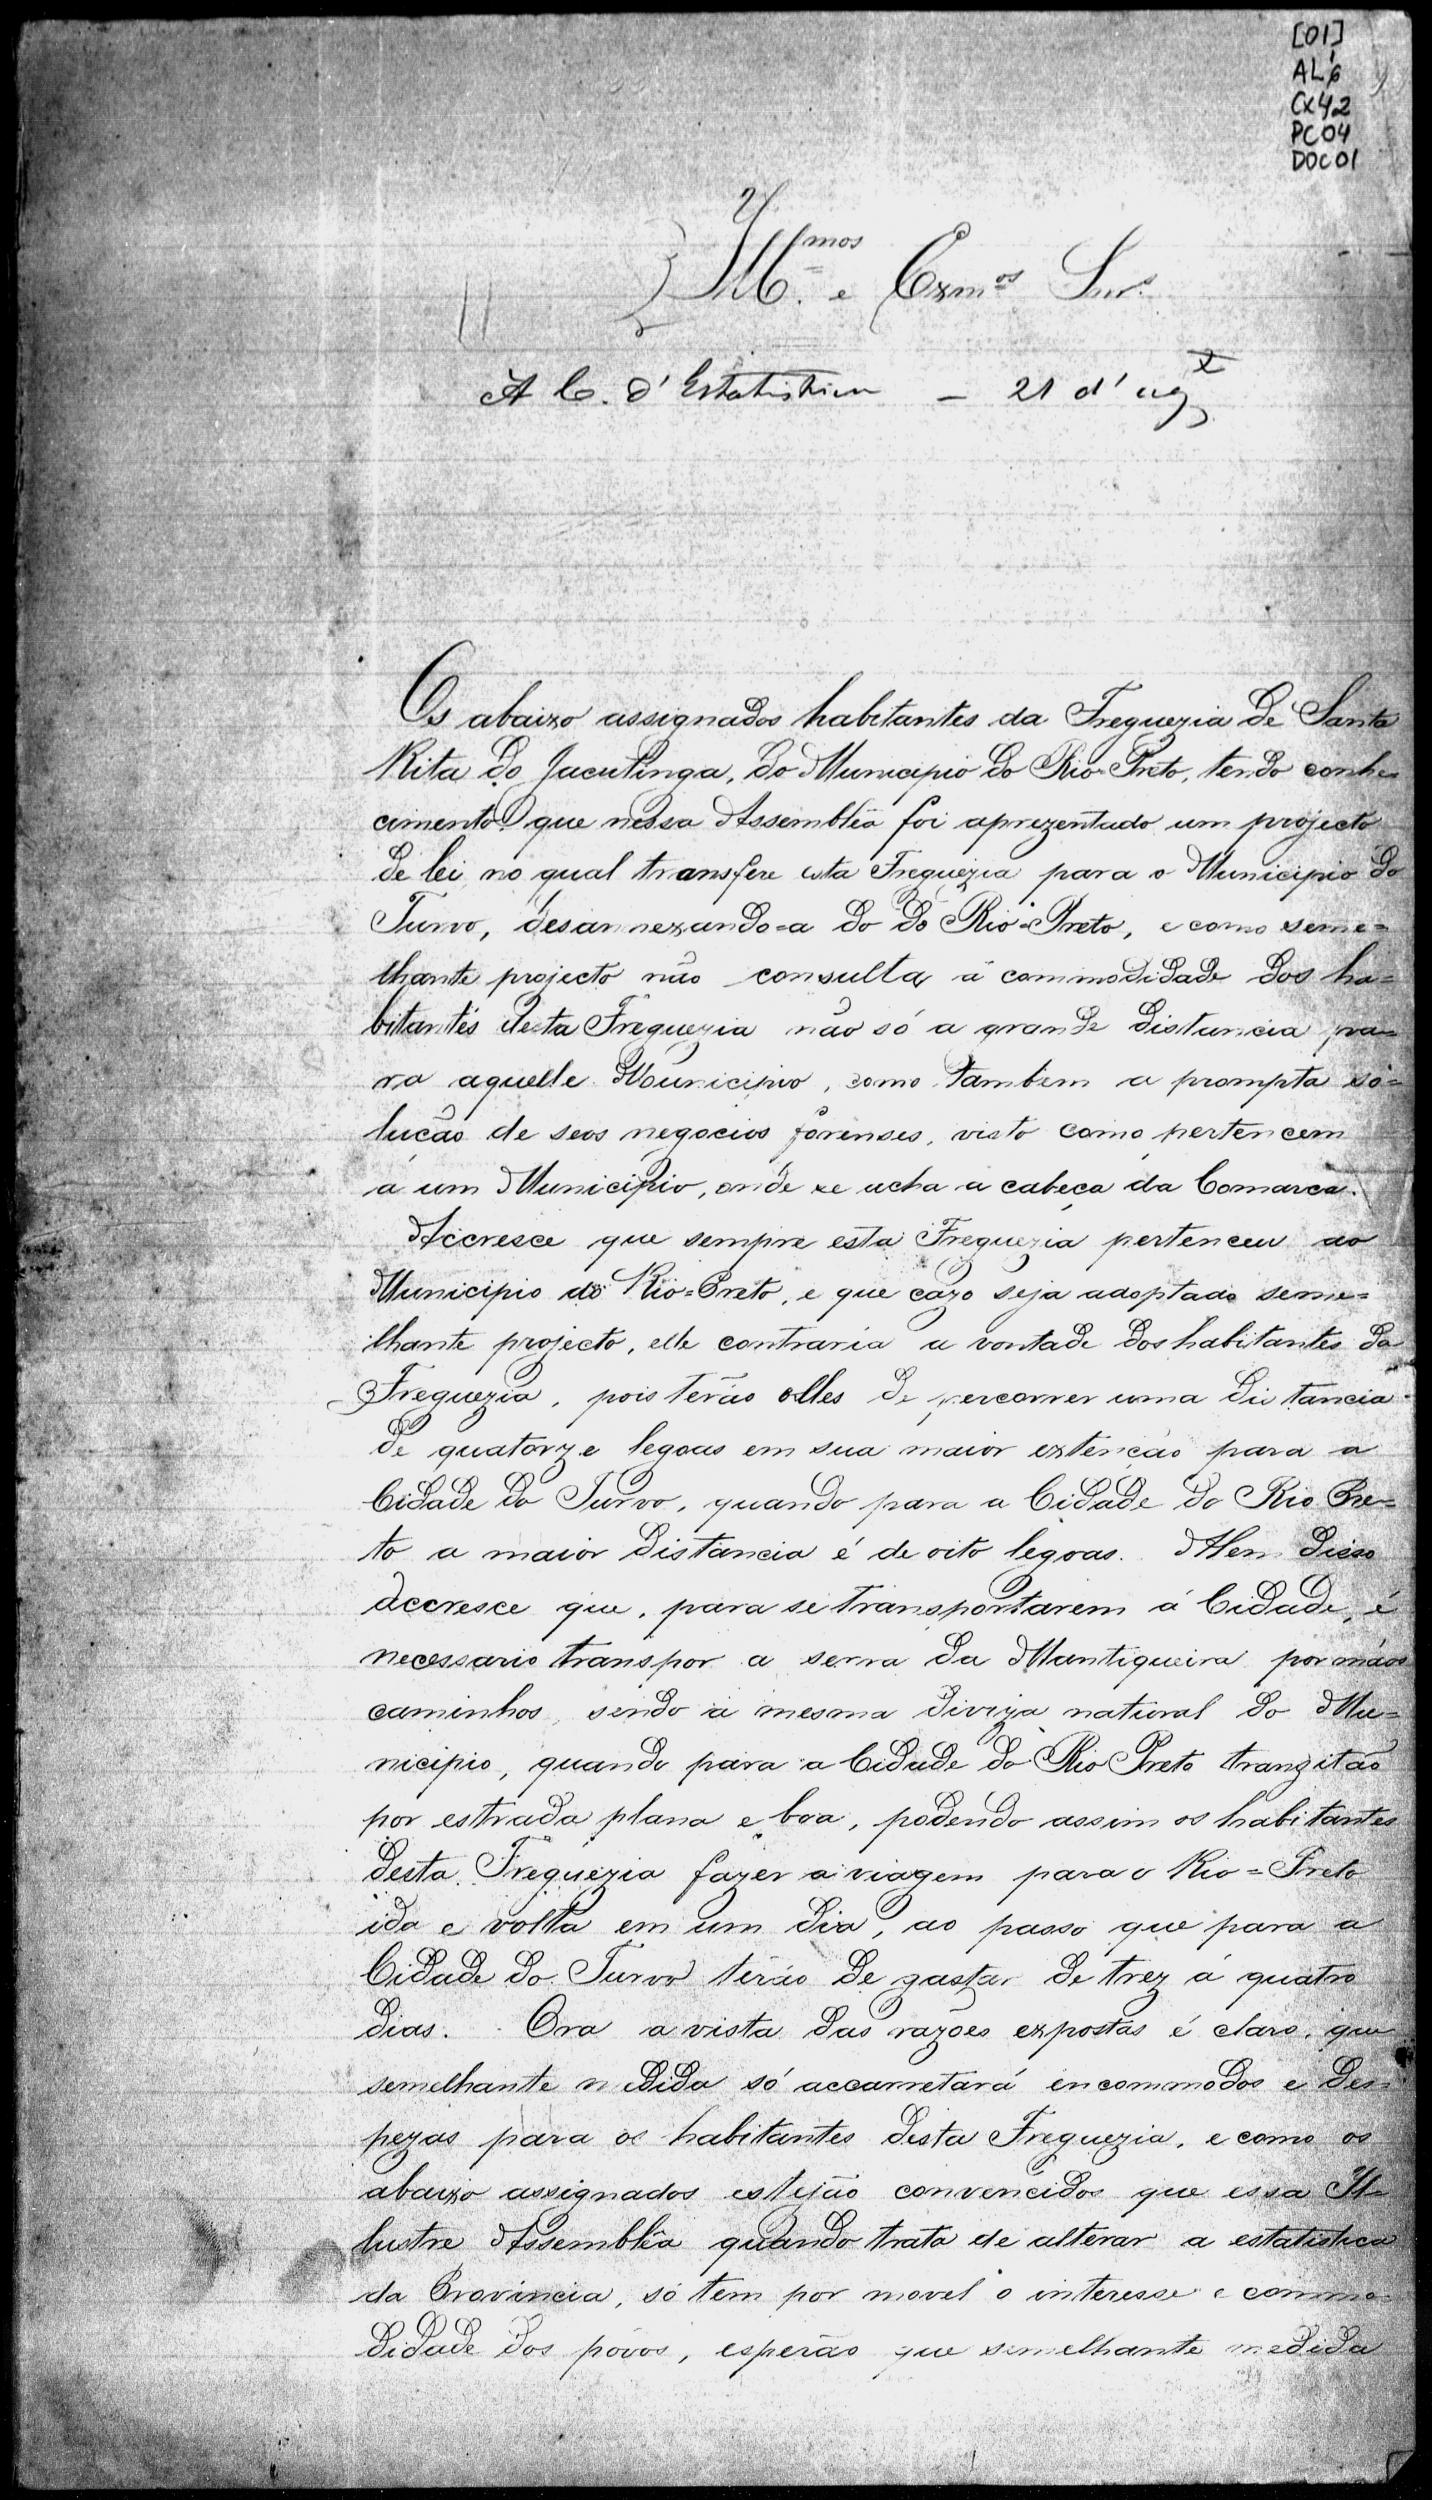 [01]
AL 6
CX42
PC04
DOC01
Ill.mos e Exmos Snrs.
A C. d'Estatistica – 21 d'agto
Os abaixo assignados habitantes da Freguezia de Santa
Rita do Jacutinga, do Municipio do Rio-Preto, tendo conhe-
cimento que nessa Assemblêa foi aprezentado um projecto
de lei no qual transfere esta Freguezia para o Municipio do
Turvo, desannexando=a do do Rio=Preto, e como seme=
lhante projecto não consulta a commodidade dos ha=
bitantes desta Freguezia não só a grande distancia pa=
ra aquelle Municipio, como tambem a prompta so=
lução de seos negocios forenses, visto como pertencem
a um Municipio, onde se acha a cabeça da Comarca.
Accresce que sempre esta Freguezia pertenceu ao
Municipio do Rio=Preto, e que cazo seja adoptado seme=
lhante projecto, elle contraria a vontade dos habitantes da
Freguezia, pois terão elles de percorrer uma distancia
de quatorze legoas em sua maior extenção para a
Cidade do Turvo, quando para a Cidade do Rio Pre=
to a maior distancia é de oito legoas. Alem disso
accresce que, para se transportarem á Cidade, é
necessario transpor a serra da Mantiqueira por máos
caminhos, sendo a mesma diviza natural do Mu=
nicipio, quando para a Cidade do Rio Preto tranzitão
por estrada plana e boa, podendo assim os habitantes
desta Freguezia fazer a viagem para o Rio=Preto
ida e volta em um dia, ao passo que para a
Cidade do Turvo terão de gastar de trez a quatro
dias. Ora a vista das razões expostas é claro, que
semelhante medida só accarretará encommodos e des=
pezas para os habitantes desta Freguezia, e como os
abaixo assignados estejão convencidos que essa Il=
lustre Assemblêa quando trata de alterar a estatistica
da Provincia, só tem por movel o interesse e commo-
didade dos póvos, esperão que semelhante medida